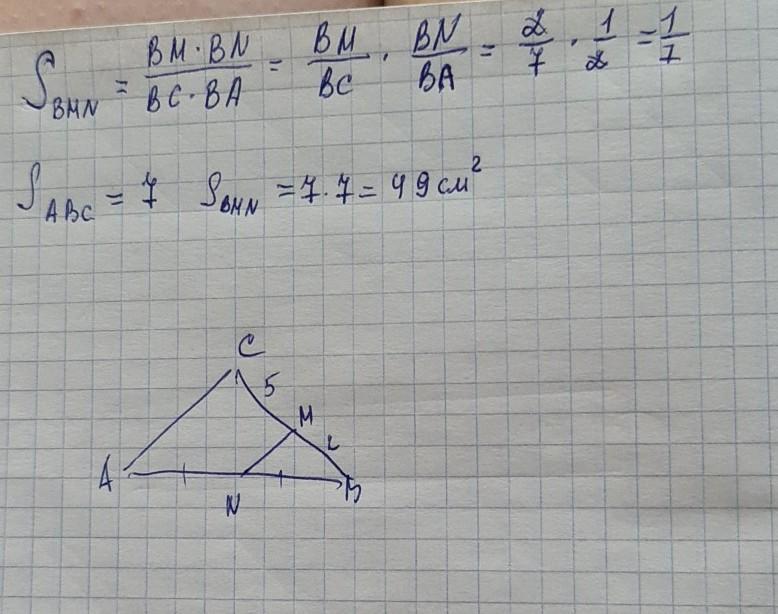 S_BMN = BM·BN / BC·BA = BM/BC · BN/BA = 2/7 · 1/2 = 1/7
S_ABC = 7 S_BMN = 7·7 = 49 см²
C
5
M
2
A
N
B